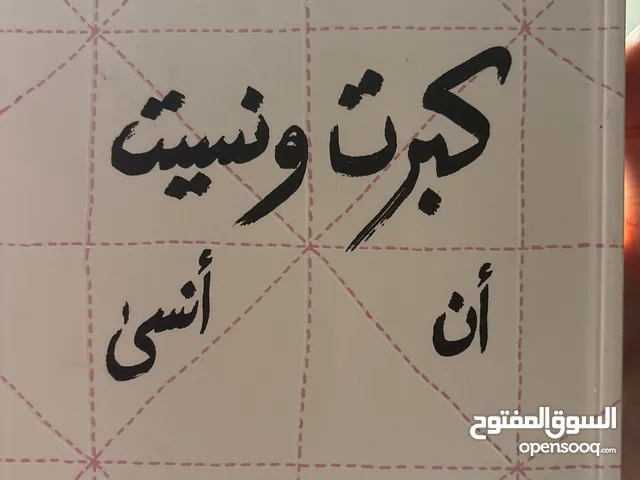 كبرت ونسيت
أن أنسى
السوق المفتوح
opensooq.com